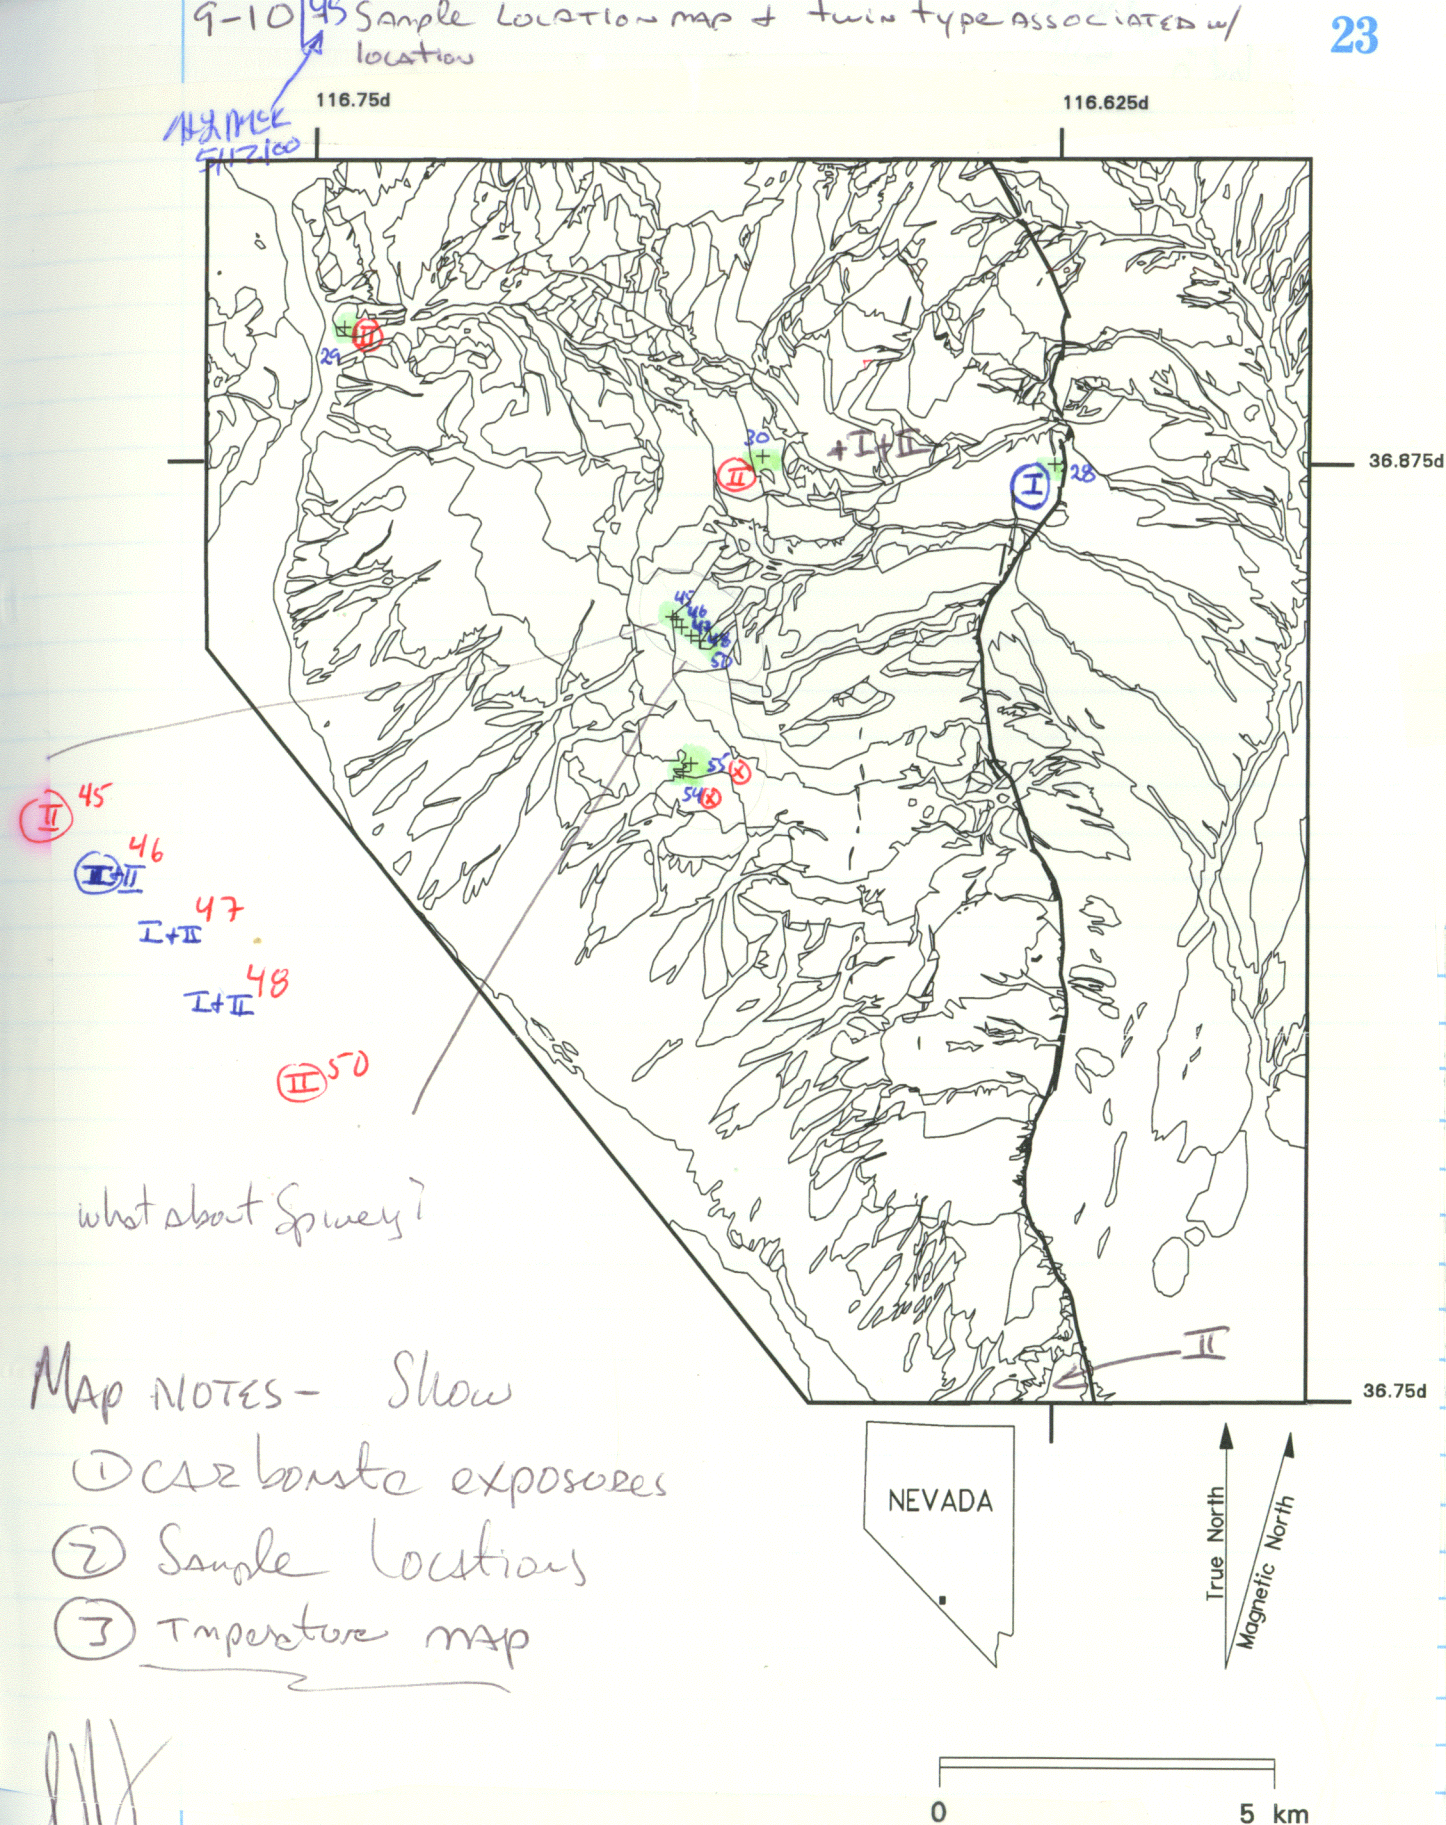 9-10/95 Sample Location map + twin type associated w/
location
23
5/12/00
116.75d
116.625d
29
II
30
II
+I+II
I
28
36.875d
45
46
47
48
50
55 X
54 X
II 45
I+II 46
I+II 47
I+II 48
II 50
what about Spivey?
II
36.75d
Map Notes- Show
① Carbonate exposures
② Sample Locations
③ Tmperature map
NEVADA
True North
Magnetic North
0 5 km